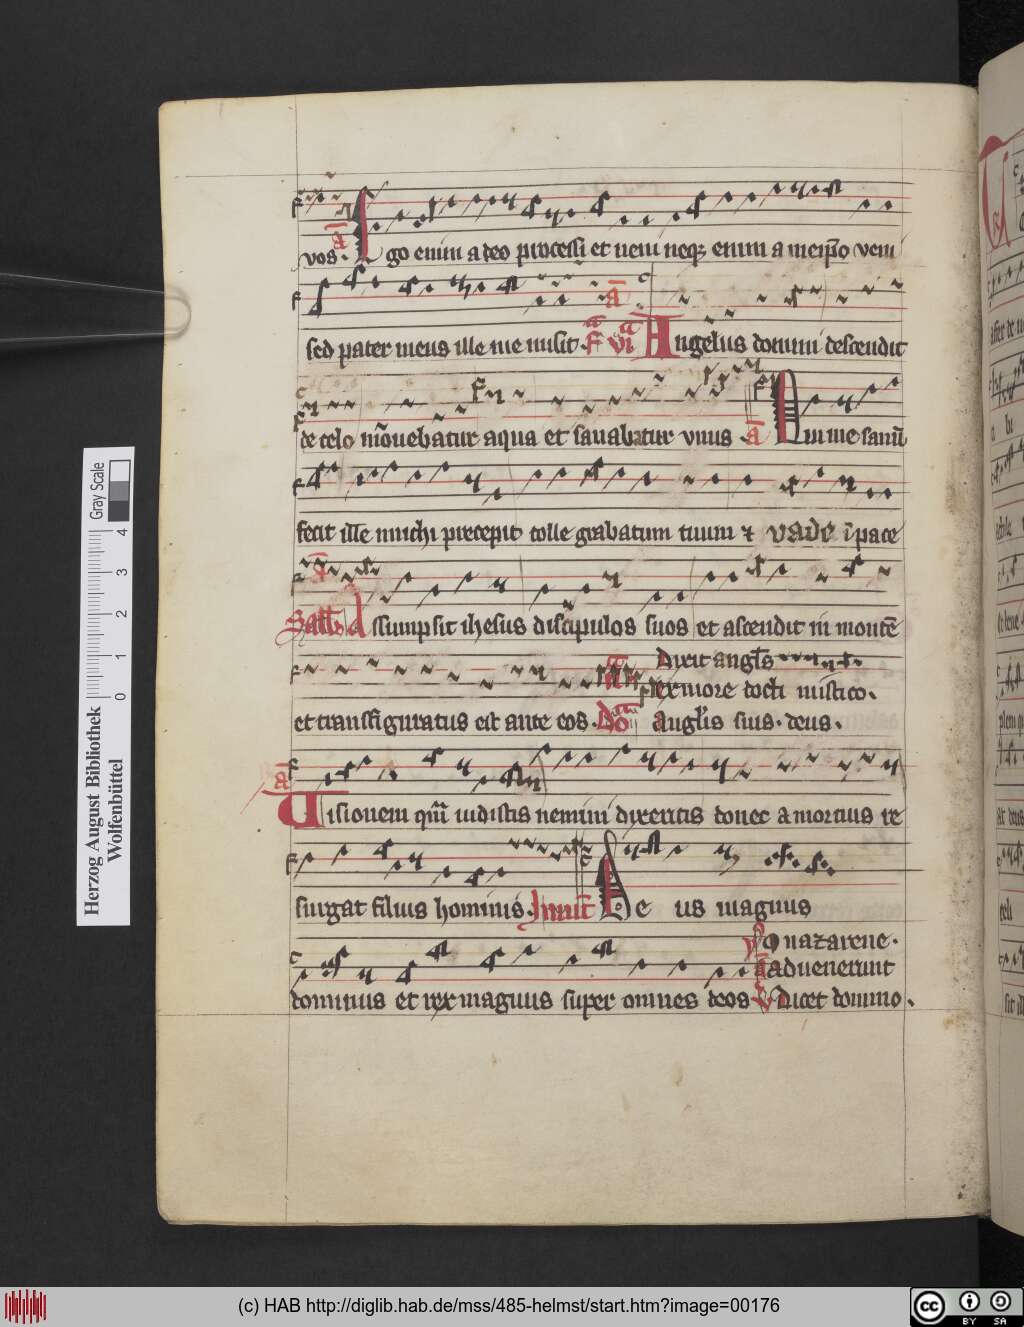 vos. a Ego enim a deo processi et ueni neq; enim a meip̄o veni
sed pater meus ille me misit. F vi a Angelus domini descendit
de celo ⁊ mouebatur aqua et sanabatur vnus. a Qui me sanū
fecit ille michi precepit tolle grabatum tuum ⁊ vade ī pace
Sabb̄o Assumpsit ihesus discipulos suos et ascendit in montē
Dixit angl̄s
ex more docti mistico.
et transfiguratus est ante eos. Do angl̄is suis. deus.
a
Uisionem quā uidistis nemini dixeritis donec a mortuis re
surgat filius hominis. Inuit Deus magnus
O nazarene.
aduenerunt
dominus et rex magnus super omnes deos V Dicet domino.
Herzog August Bibliothek
Wolfenbüttel
Gray Scale
0 1 2 3 4
(c) HAB http://diglib.hab.de/mss/485-helmst/start.htm?image=00176
cc BY SA